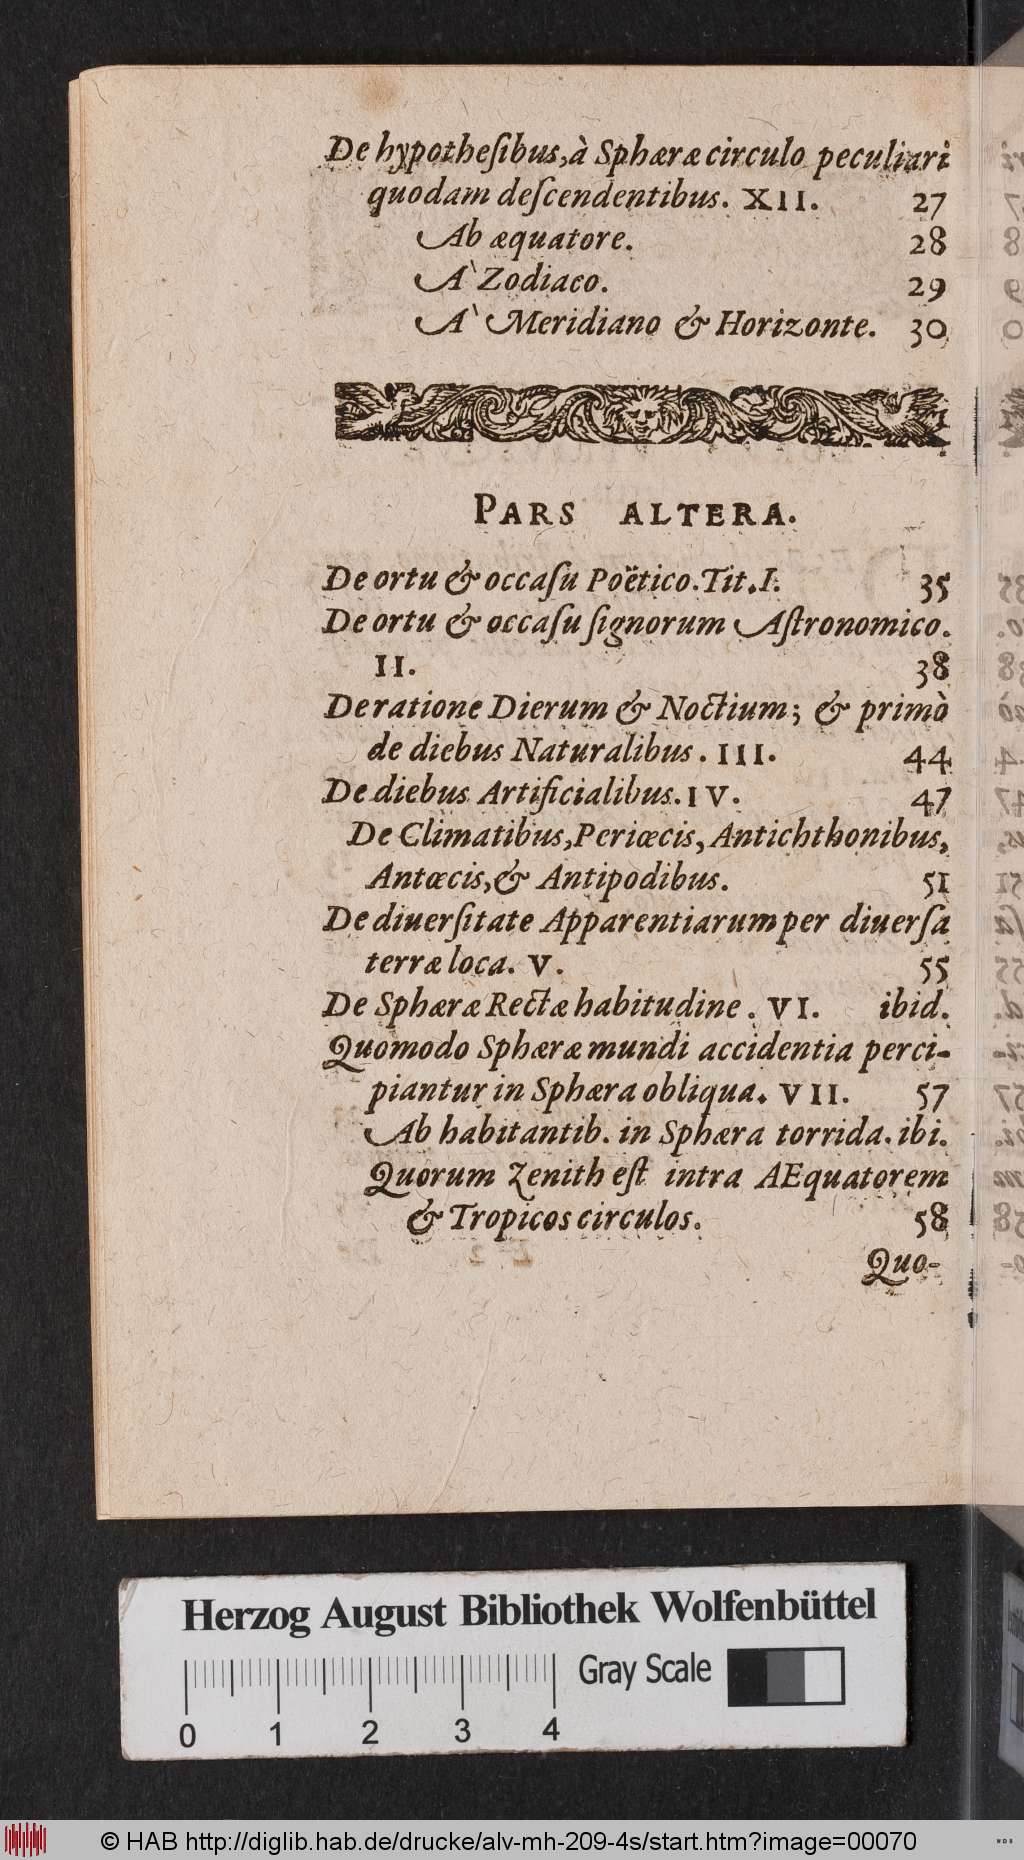 De hypotheſibus, à Sphæræ circulo peculiari
quodam deſcendentibus. XII. 27
Ab æquatore. 28
A` Zodiaco. 29
A` Meridiano & Horizonte. 30
PARS ALTERA.
De ortu & occaſu Poëtico. Tit. I. 35
De ortu & occaſu ſignorum Aſtronomico.
II. 38
De ratione Dierum & Noctium; & primò
de diebus Naturalibus. III. 44
De diebus Artificialibus. IV. 47
De Climatibus, Periœcis, Antichthonibus,
Antœcis, & Antipodibus. 51
De diuerſitate Apparentiarum per diuerſa
terræ loca. V. 55
De Sphæræ Rectæ habitudine. VI. ibid.
Quomodo Sphæræ mundi accidentia perci-
piantur in Sphæra obliqua. VII. 57
Ab habitantib. in Sphæra torrida. ibi.
Quorum Zenith eſt intra AEquatorem
& Tropicos circulos. 58
Quo-
Herzog August Bibliothek Wolfenbüttel
Gray Scale
0 1 2 3 4
© HAB http://diglib.hab.de/drucke/alv-mh-209-4s/start.htm?image=00070